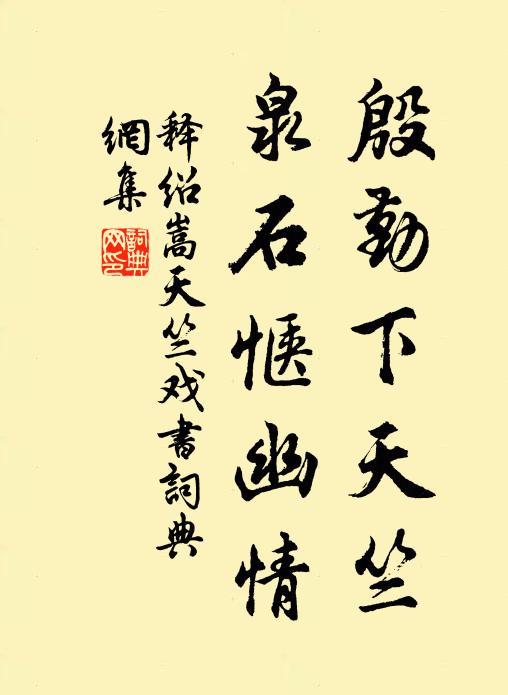 殷勤下天竺
泉石惬幽情
释绍嵩天竺戏書詞典
網集
詞典
网印